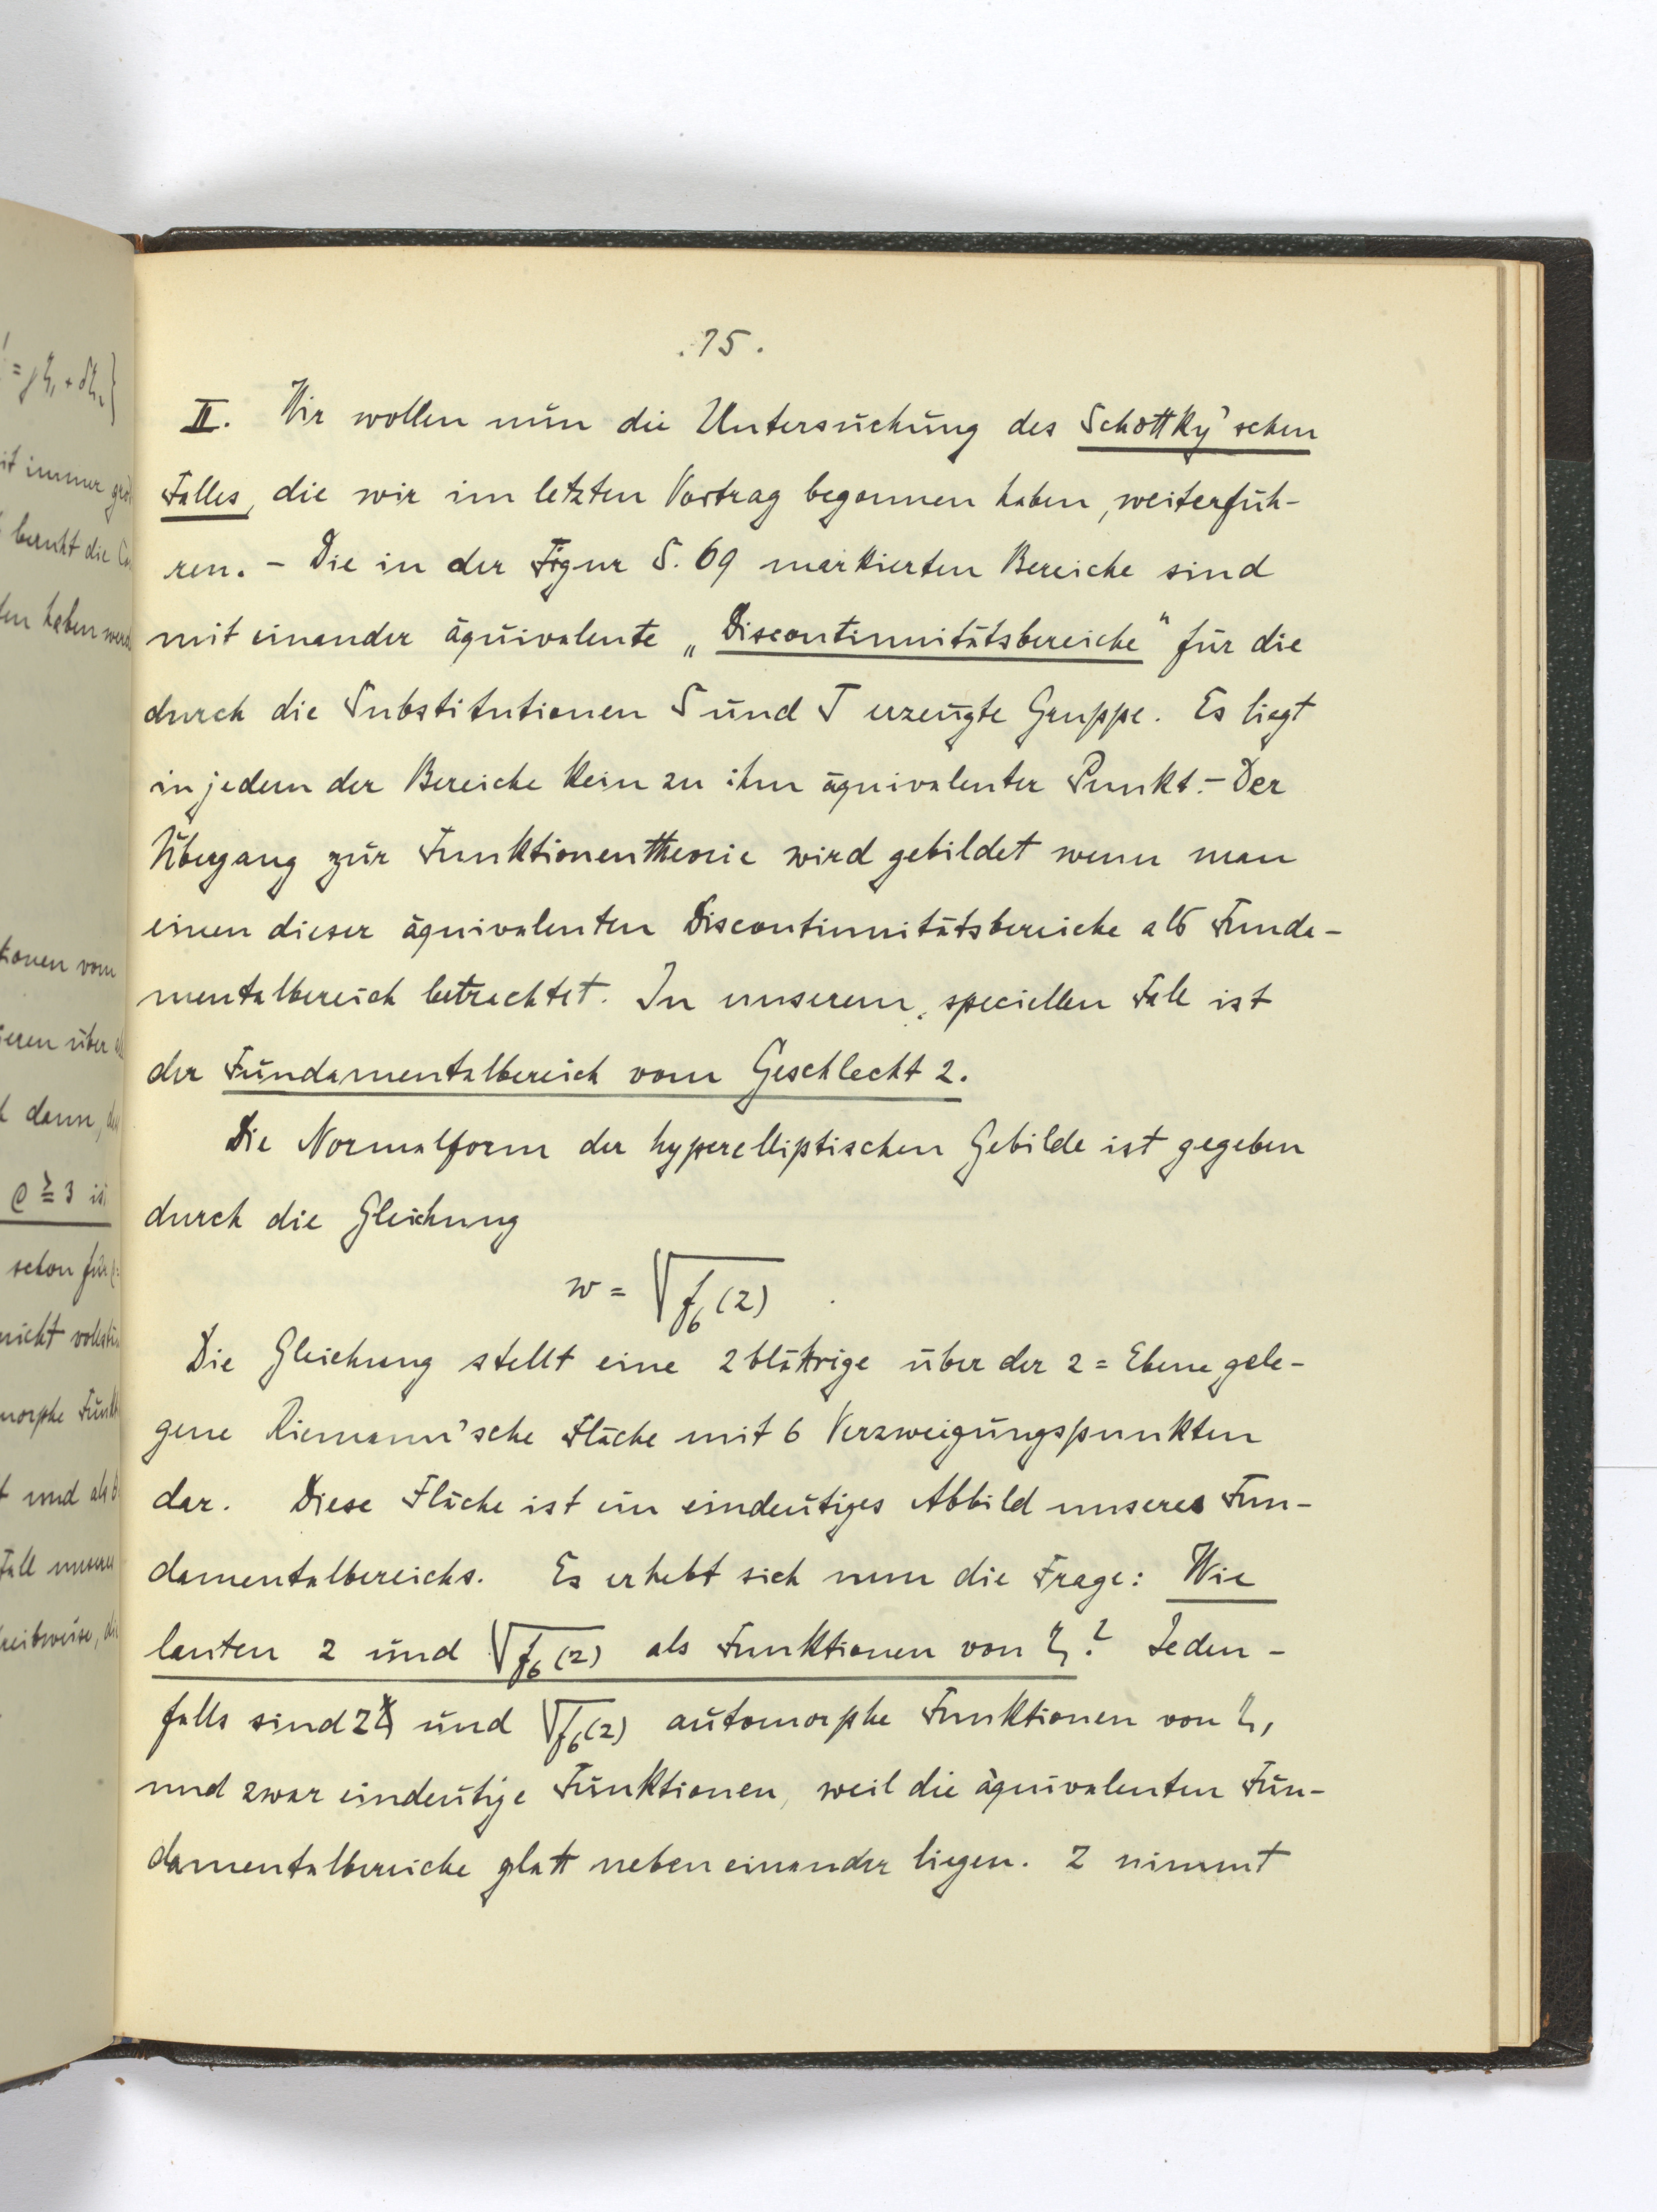 .75.
II. Wir wollen nun die Untersuchung des Schottky'schen
Falles, die wir im letzten Vortrag begonnen haben, weiterfüh-
ren. - Die in der Figur S. 69 markierten Bereiche sind
mit einander äquivalente „Discontinuitätsbereiche" für die
durch die Substitutionen S und T erzeugte Gruppe. Es liegt
in jedem der Bereiche kein zu ihm äquivalenter Punkt. - Der
Übergang zur Funktionentheorie wird gebildet wenn man
einen dieser äquivalenten Discontinuitätsbereiche als Funda-
mentalbereich betrachtet. In unserem speciellen Fall ist
der Fundamentalbereich vom Geschlecht 2.
Die Normalform der hyperelliptischen Gebilde ist gegeben
durch die Gleichung
w = √f₆(z) .
Die Gleichung stellt eine 2 blättrige über der z = Ebene gele-
gene Riemann'sche Fläche mit 6 Verzweigungspunkten
dar. Diese Fläche ist ein eindeutiges Abbild unseres Fun-
damentalbereichs. Es erhebt sich nun die Frage: Wie
lauten z und √f₆(z) als Funktionen von ζ? Jeden-
falls sind z und √f₆(z) automorphe Funktionen von ζ,
und zwar eindeutige Funktionen, weil die äquivalenten Fun-
damentalbereiche glatt neben einander liegen. z nimmt
= γζ₁ + δζ₂}
immer
beruht die
haben
über
dann,
ϱ ≧ 3
schon für
nicht
und als
Fall unseres